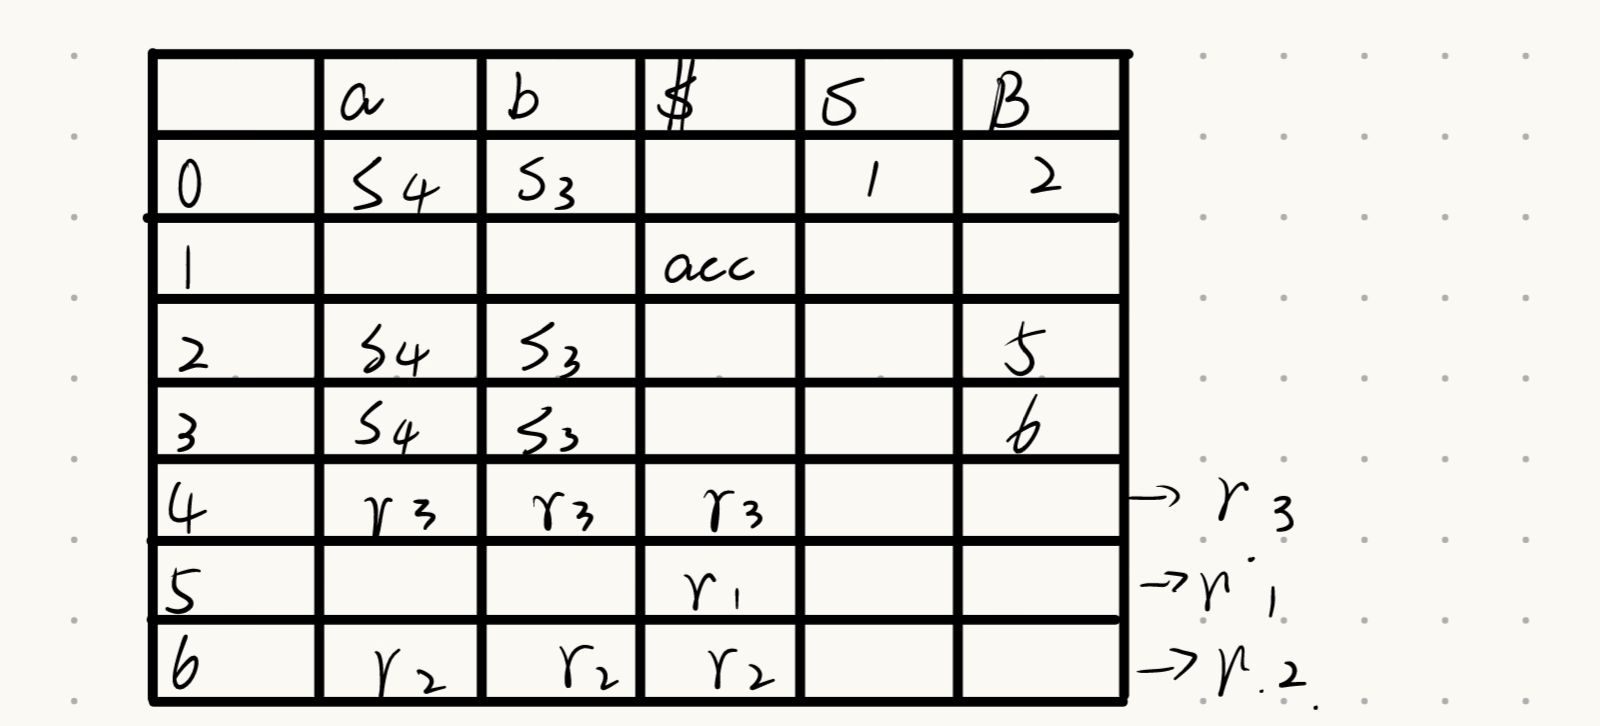 a b $ S B
0 S4 S3 1 2
1 acc
2 S4 S3 5
3 S4 S3 6
4 r3 r3 r3 → r3
5 r1 → r1
6 r2 r2 r2 → r2